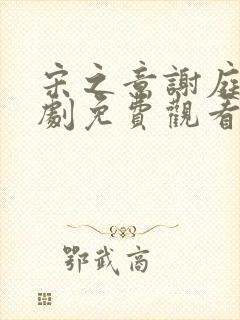 宋之章謝庭
劇免費觀看
鄂武商